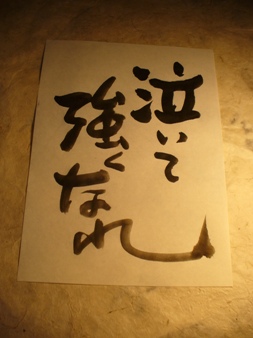 泣いて
強く
なれ